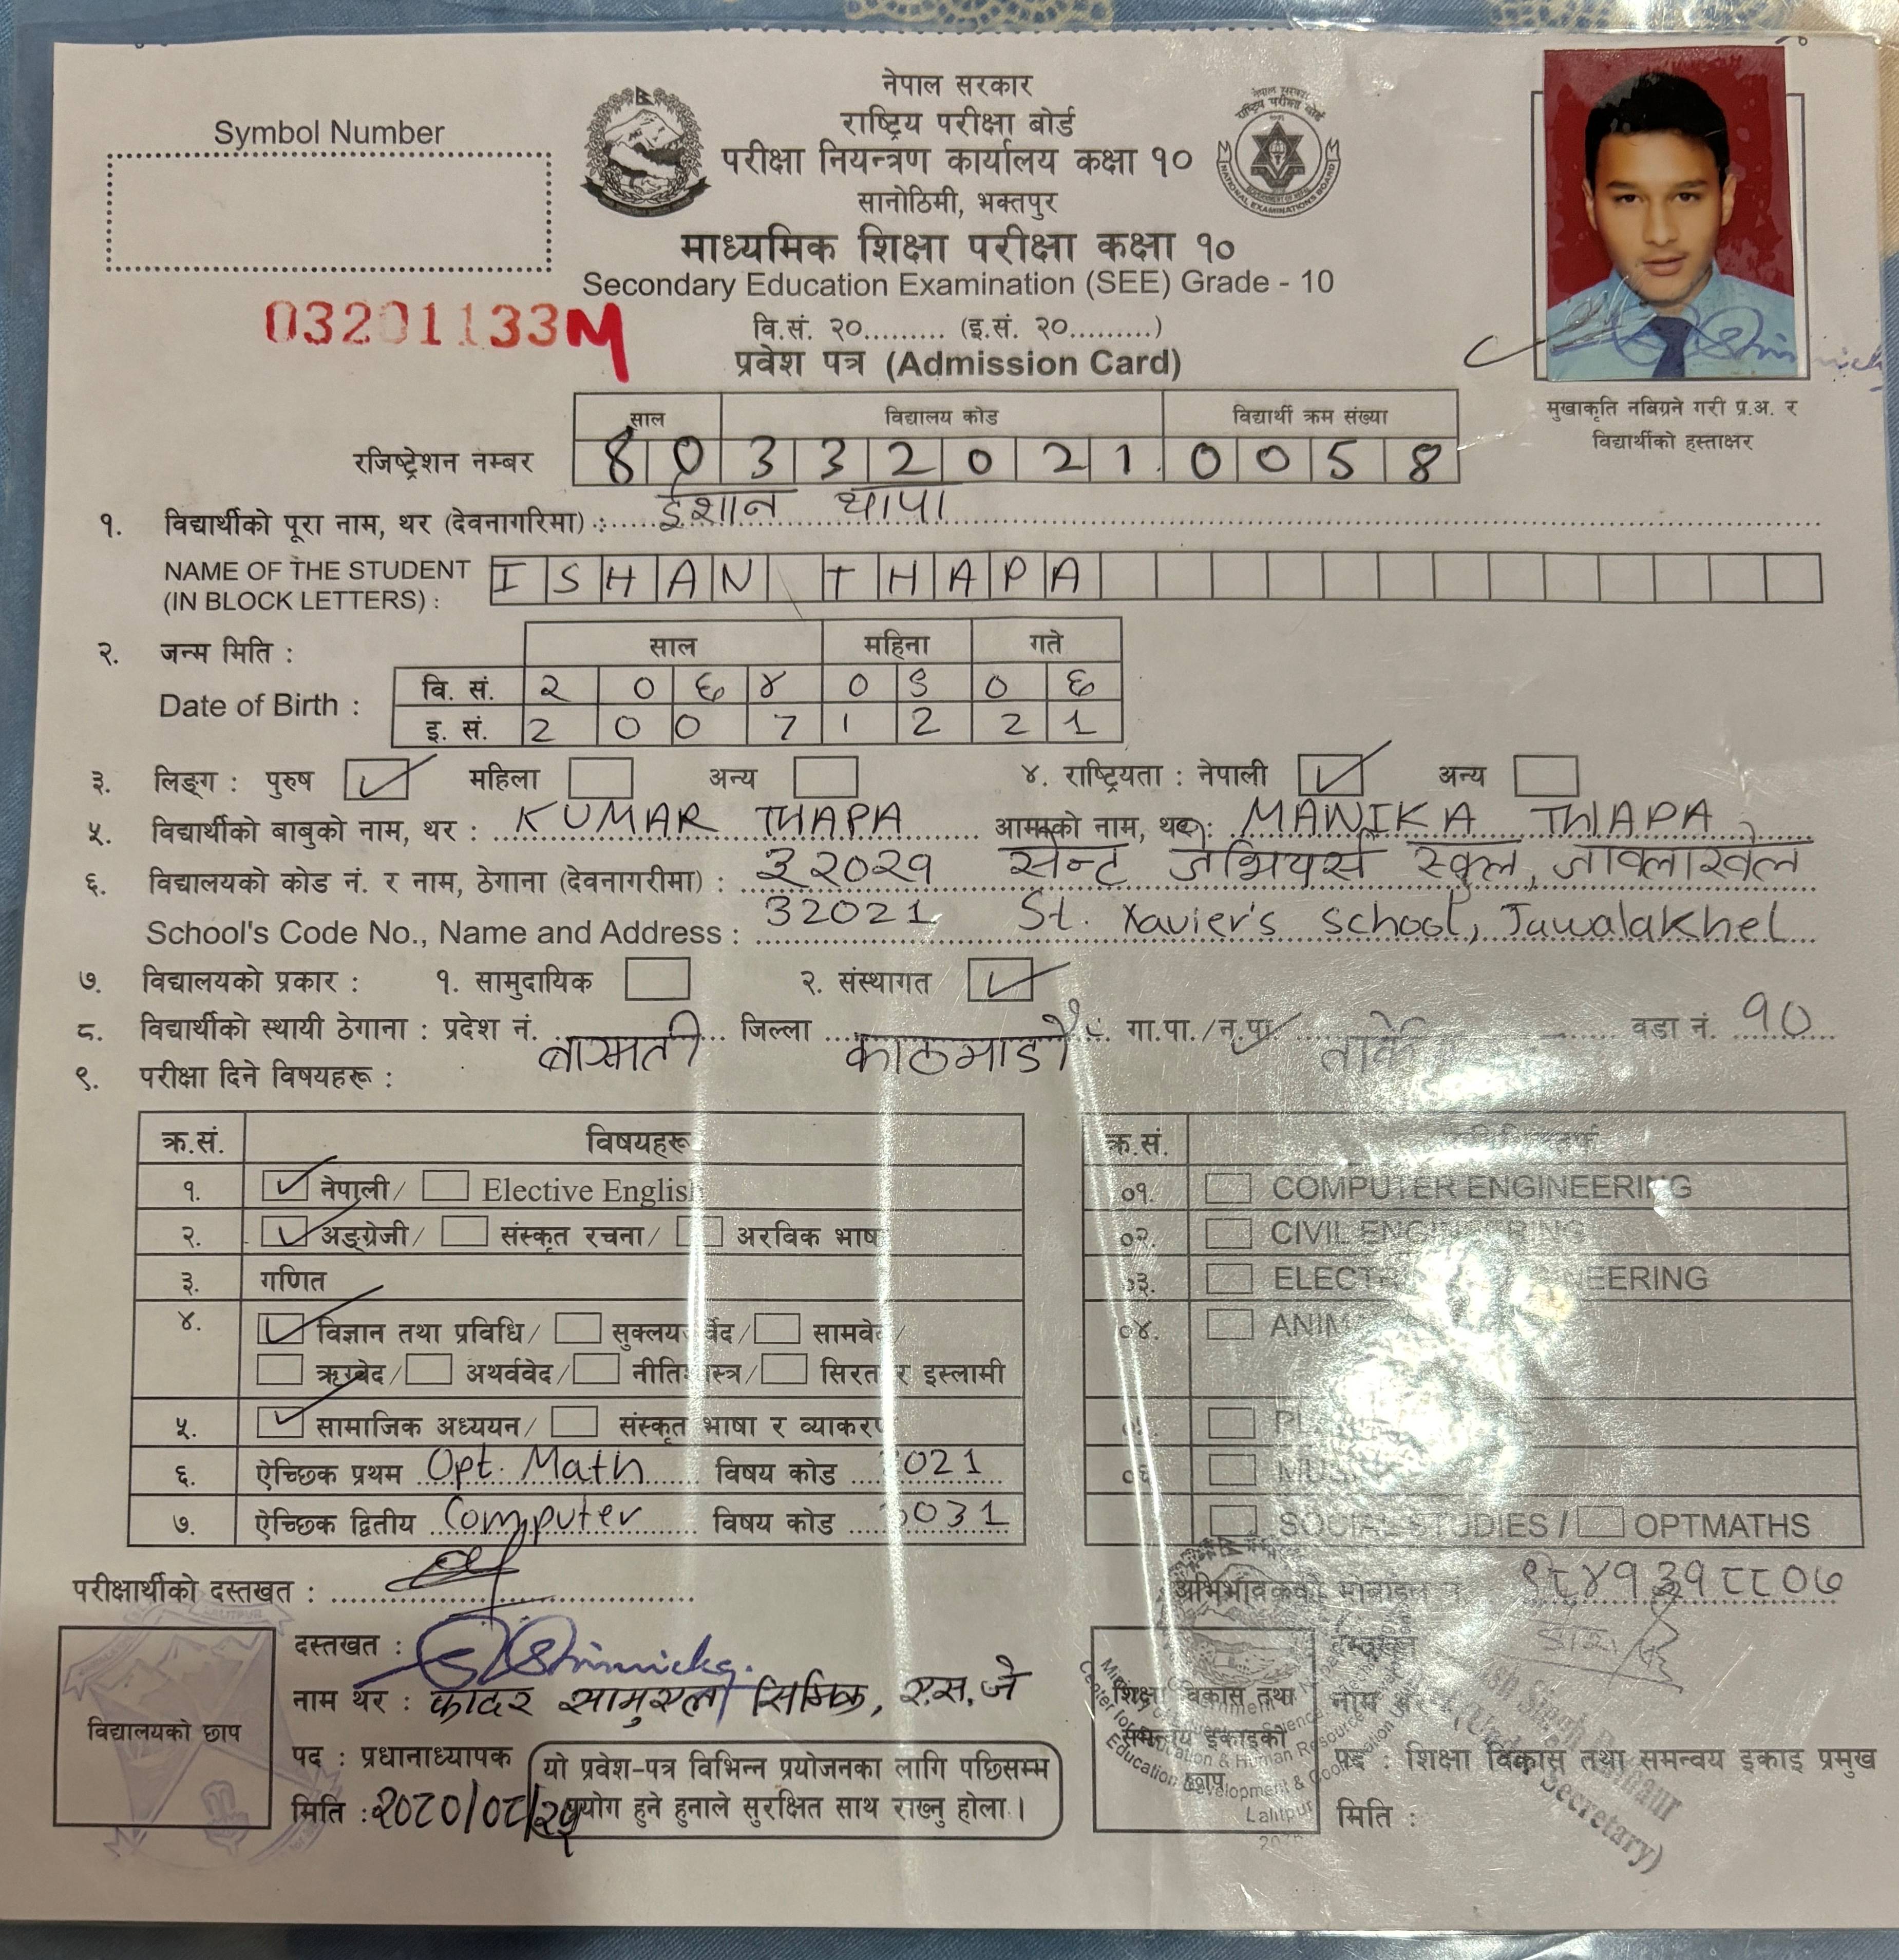 Symbol Number
नेपाल सरकार
राष्ट्रिय परीक्षा बोर्ड
परीक्षा नियन्त्रण कार्यालय कक्षा १०
सानोठिमी, भक्तपुर
माध्यमिक शिक्षा परीक्षा कक्षा १०
Secondary Education Examination (SEE) Grade - 10
03201133M
वि.सं. २०......... (इ.सं. २०.........)
प्रवेश पत्र (Admission Card)
मुखाकृति नबिग्रने गरी प्र.अ. र
विद्यार्थीको हस्ताक्षर
साल विद्यालय कोड विद्यार्थी क्रम संख्या
रजिष्ट्रेशन नम्बर 8 0 3 3 2 0 2 1 0 0 5 8
१. विद्यार्थीको पूरा नाम, थर (देवनागरिमा) : ईशान थापा
NAME OF THE STUDENT ISHAN THAPA
(IN BLOCK LETTERS) :
२. जन्म मिति : साल महिना गते
Date of Birth : वि. सं. २ ० ६ ४ ० ९ ० ६
इ. सं. 2 0 0 7 1 2 2 1
३. लिङ्ग : पुरुष महिला अन्य ४. राष्ट्रियता : नेपाली अन्य
५. विद्यार्थीको बाबुको नाम, थर : KUMAR THAPA आमाको नाम, थर : MANIKA THAPA
६. विद्यालयको कोड नं. र नाम, ठेगाना (देवनागरीमा) : ३२०२१ सेन्ट जेभियर्स स्कुल, जावलाखेल
School's Code No., Name and Address : 32021 St. Xavier's School, Jawalakhel
७. विद्यालयको प्रकार : १. सामुदायिक २. संस्थागत
८. विद्यार्थीको स्थायी ठेगाना : प्रदेश नं. बागमती जिल्ला काठमाडौं गा.पा./न.पा. वडा नं. १०
९. परीक्षा दिने विषयहरू :
क्र.सं. विषयहरू
१. नेपाली/ Elective English
२. अङ्ग्रेजी/ संस्कृत रचना/ अरविक भाषा
३. गणित
४. विज्ञान तथा प्रविधि/ सुक्लयजुर्वेद/ सामवेद/
ऋग्वेद/ अथर्ववेद/ नीतिशास्त्र/ सिरत र इस्लामी
५. सामाजिक अध्ययन/ संस्कृत भाषा र व्याकरण
६. ऐच्छिक प्रथम Opt. Math विषय कोड 021
७. ऐच्छिक द्वितीय Computer विषय कोड 031
क्र.सं.
०१. COMPUTER ENGINEERING
०२. CIVIL ENGINEERING
०३. ENGINEERING
०४.
SOCIAL STUDIES / OPTMATHS
परीक्षार्थीको दस्तखत :
अभिभावकको मोबाइल नं. ९८४१३१८८०७
दस्तखत :
नाम थर : फादर सामुएल सिमिक, एस.जे
विद्यालयको छाप
पद : प्रधानाध्यापक
मिति : २०८०/०८/२५
यो प्रवेश-पत्र विभिन्न प्रयोजनका लागि पछिसम्म
प्रयोग हुने हुनाले सुरक्षित साथ राख्नु होला ।
शिक्षा विकास तथा
समन्वय इकाइको
छाप
दस्तखत
नाम थर
पद : शिक्षा विकास तथा समन्वय इकाइ प्रमुख
मिति :
Lalitpur